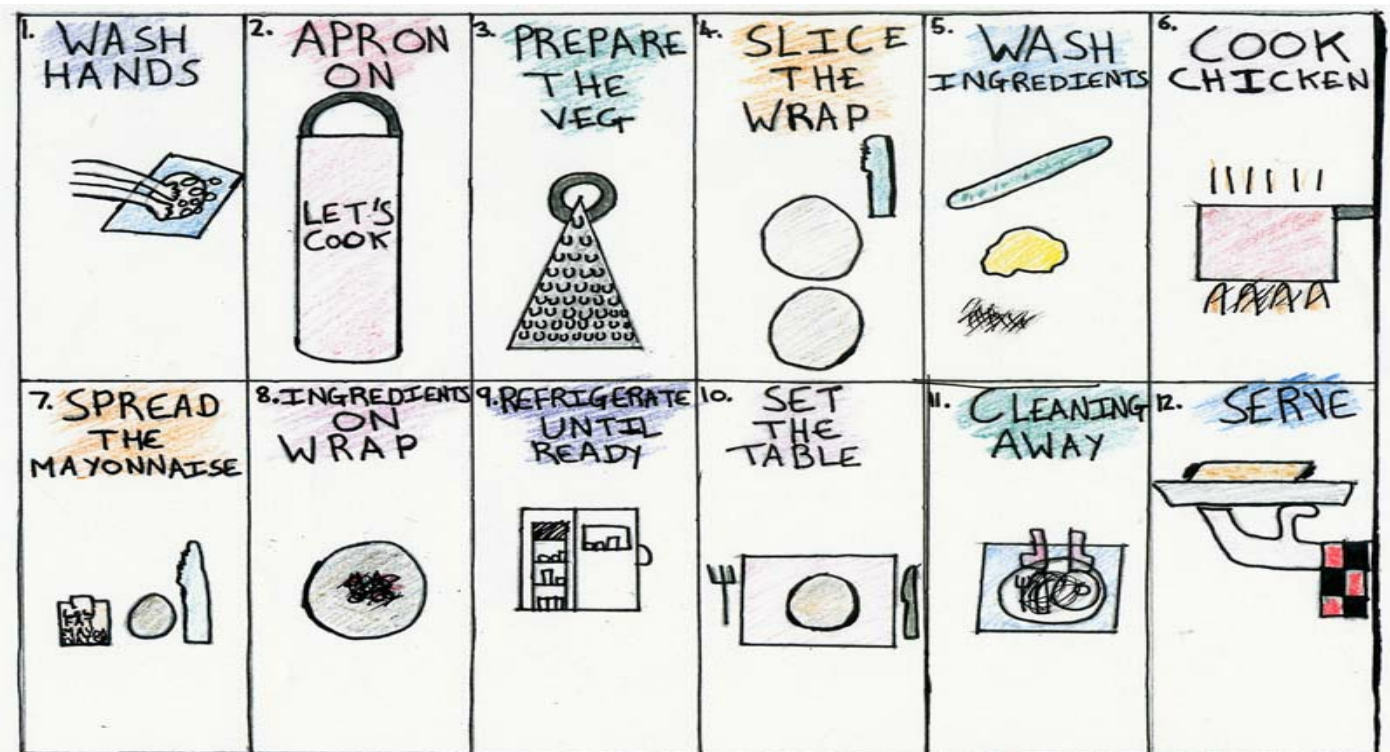 1. WASH
HANDS
2. APRON
ON
LET'S
COOK
3. PREPARE
THE
VEG
4. SLICE
THE
WRAP
5. WASH
INGREDIENTS
6. COOK
CHICKEN
7. SPREAD
THE
MAYONNAISE
LOW
FAT
MAYO
8. INGREDIENTS
ON
WRAP
9. REFRIGERATE
UNTIL
READY
10. SET
THE
TABLE
11. CLEANING
AWAY
12. SERVE